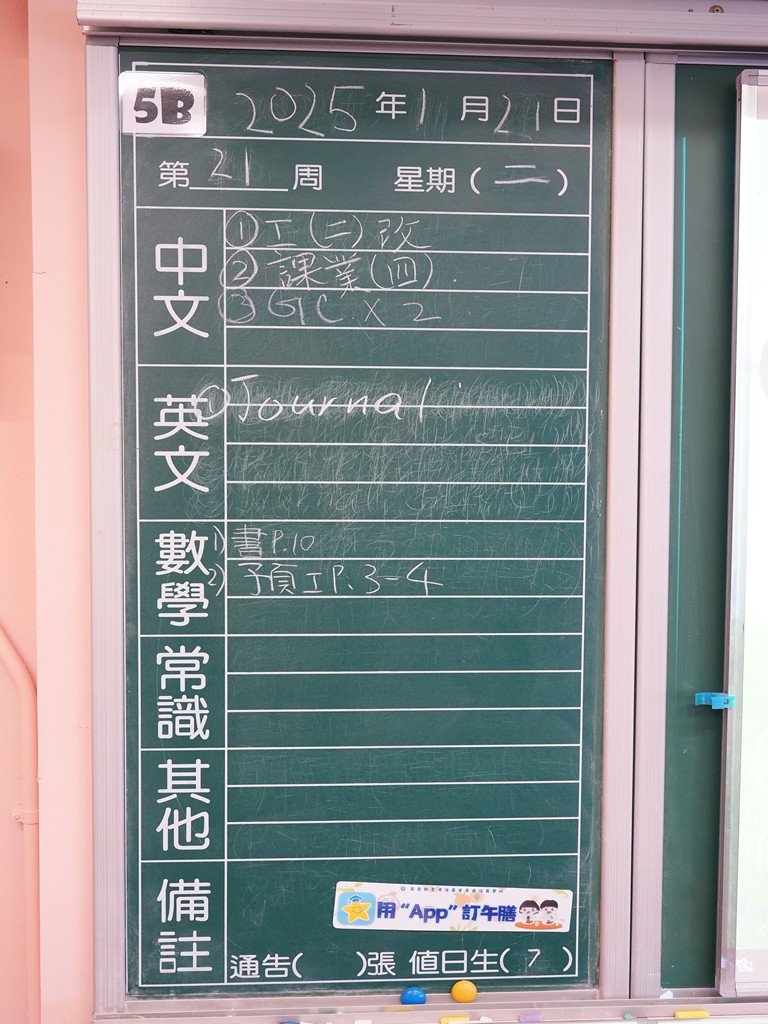 5B 2025年1月21日
第21周 星期(二)
中文
①工(二)改
②課業(四)
③GC x 2
英文
①Journal
數學
1)書P.10
2)予頁工P.3-4
常識
其他
備註
用"App"訂午膳
通告( )張 值日生(7)